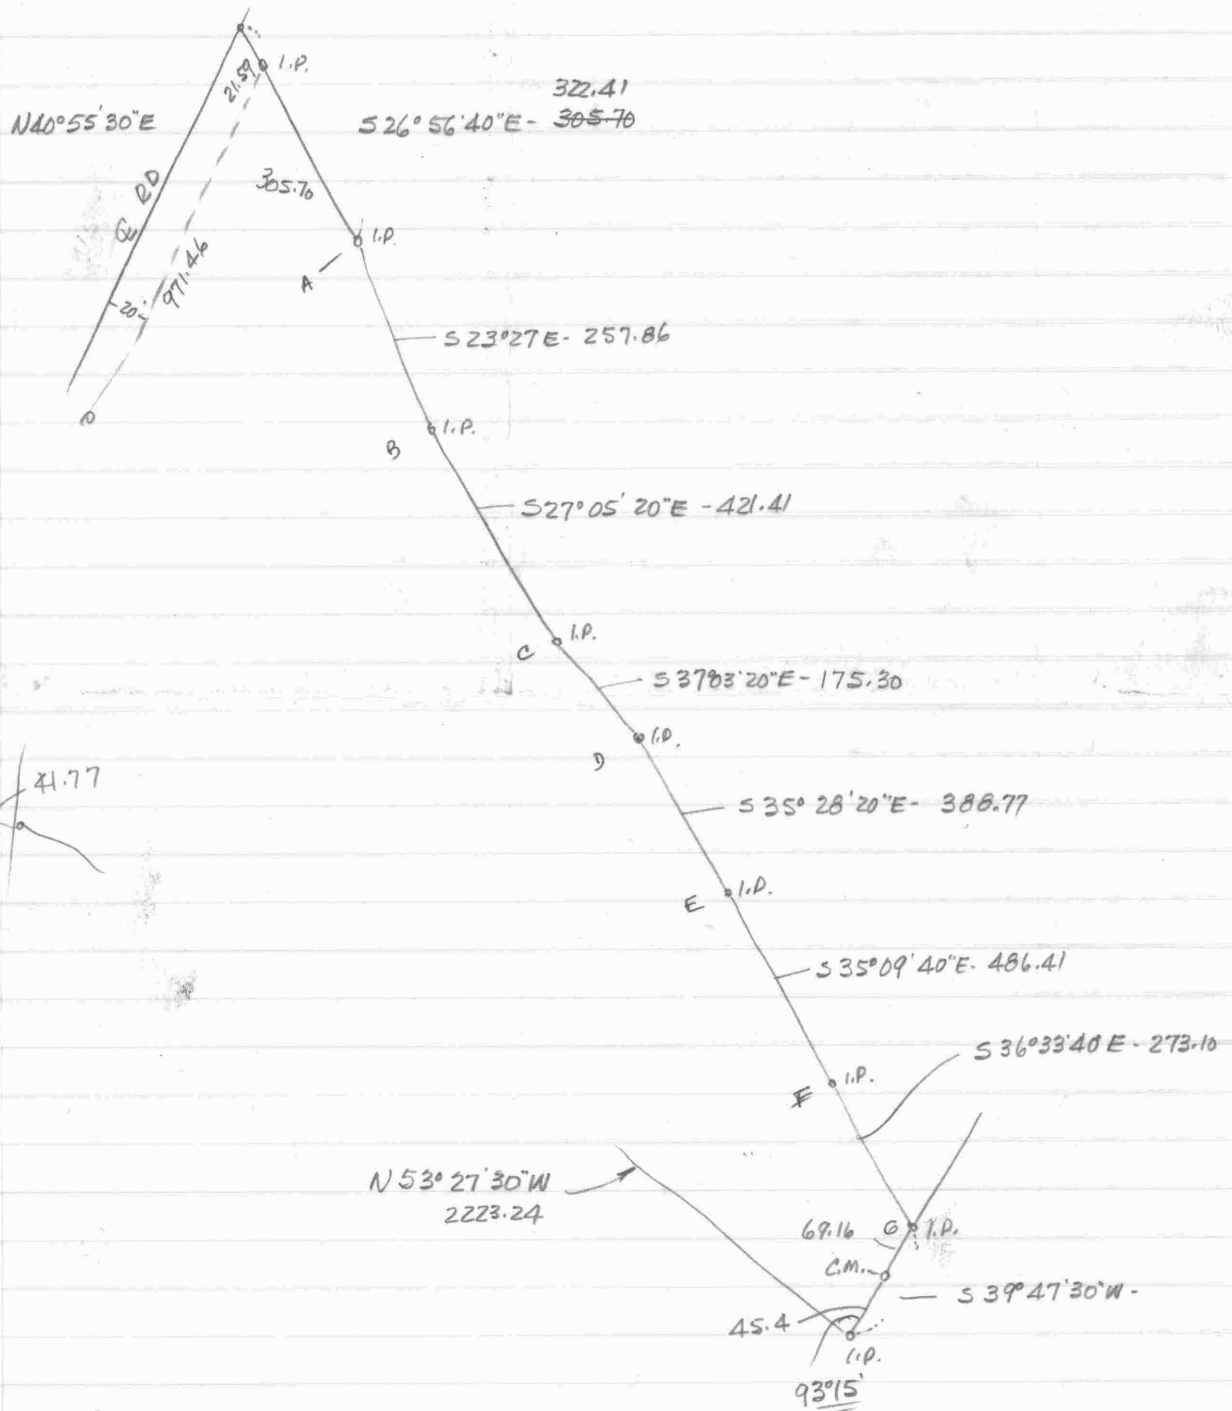 I.P.
21.59
322.41
N40°55'30"E
S26°56'40"E- 305.70
℄ RD
305.70
I.P.
A
971.46
20'
S23°27E- 257.86
I.P.
B
S27°05'20"E -421.41
I.P.
C
S37°03'20"E- 175.30
I.P.
D
41.77
S35°28'20"E- 388.77
I.P.
E
S35°09'40"E- 486.41
S36°33'40E- 273.10
I.P.
F
N53°27'30"W
2223.24
69.16
G
I.P.
C.M.
S39°47'30"W-
45.4
I.P.
93°15'